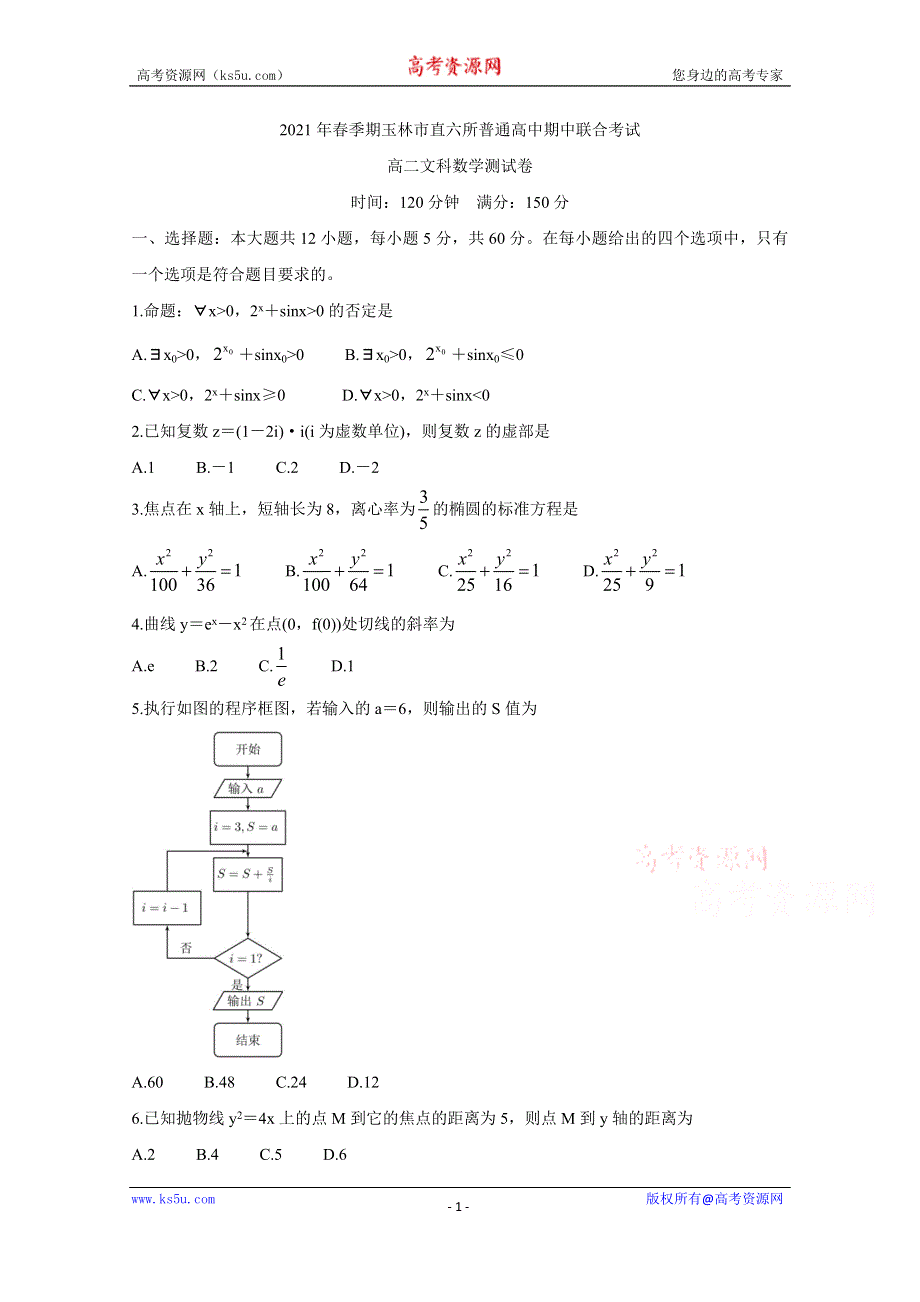 高考资源网（ks5u.com） 高考资源网 您身边的高考专家
2021年春季期玉林市直六所普通高中期中联合考试
高二文科数学测试卷
时间：120分钟 满分：150分
一、选择题：本大题共12小题，每小题5分，共60分。在每小题给出的四个选项中，只有
一个选项是符合题目要求的。
1.命题：∀x>0，2ˣ＋sinx>0的否定是
A.∃x₀>0，2^{x₀}＋sinx₀>0 B.∃x₀>0，2^{x₀}＋sinx₀≤0
C.∀x>0，2ˣ＋sinx≥0 D.∀x>0，2ˣ＋sinx<0
2.已知复数z＝(1－2i)·i(i为虚数单位)，则复数z的虚部是
A.1 B.－1 C.2 D.－2
3.焦点在x轴上，短轴长为8，离心率为3/5的椭圆的标准方程是
A.x²/100+y²/36=1 B.x²/100+y²/64=1 C.x²/25+y²/16=1 D.x²/25+y²/9=1
4.曲线y＝eˣ－x²在点(0，f(0))处切线的斜率为
A.e B.2 C.1/e D.1
5.执行如图的程序框图，若输入的a＝6，则输出的S值为
开始
输入 a
i = 3, S = a
S = S + S/i
i = i − 1
否
i = 1?
是
输出 S
结束
高考资源网
高考资源网
A.60 B.48 C.24 D.12
6.已知抛物线y²＝4x上的点M到它的焦点的距离为5，则点M到y轴的距离为
A.2 B.4 C.5 D.6
www.ks5u.com - 1 - 版权所有@高考资源网